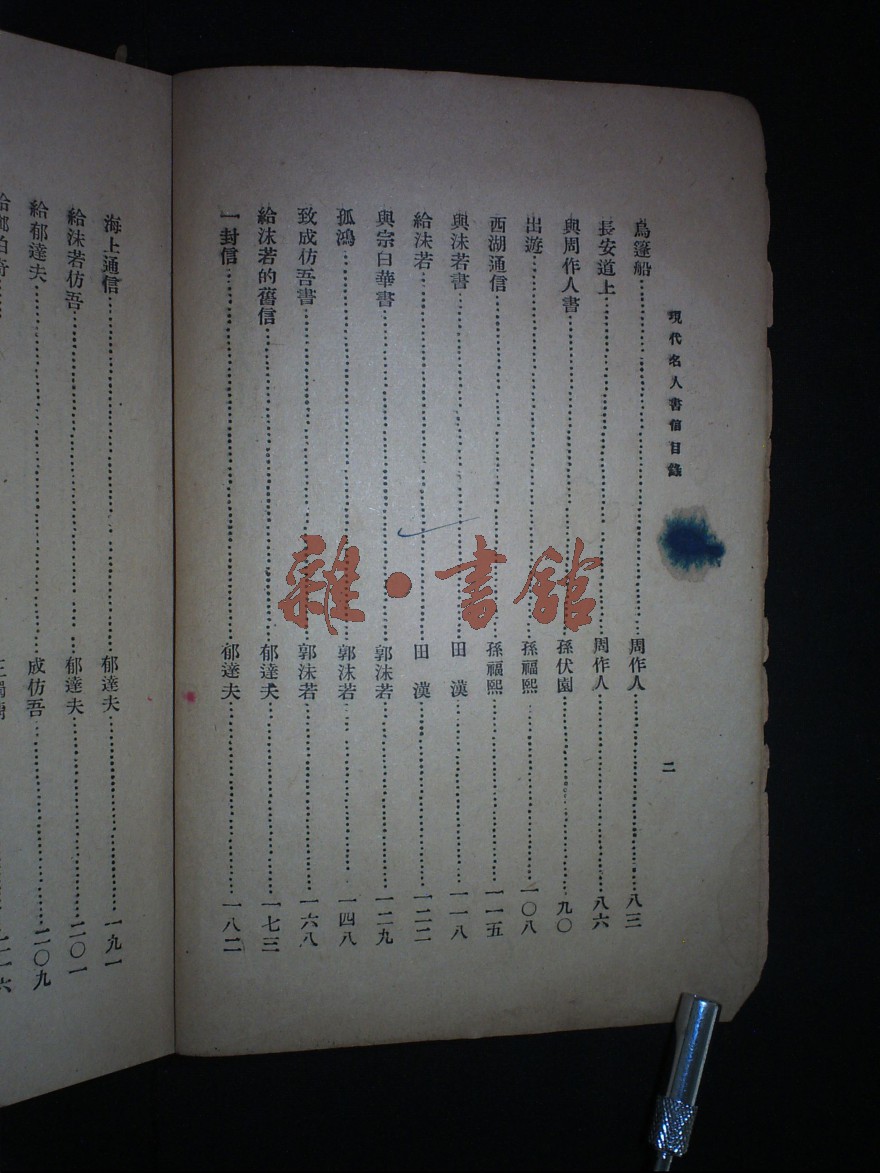 現代名人書信目錄
二
烏篷船……周作人……八三
長安道上……周作人……八六
與周作人書……孫伏園……九〇
出遊……孫福熙……一〇八
西湖通信……孫福熙……一一五
與沫若書……田漢……一一八
給沫若……田漢……一二二
與宗白華書……郭沫若……一二九
孤鴻……郭沫若……一四八
致成仿吾書……郭沫若……一六八
給沫若的舊信……郁達夫……一七三
一封信……郁達夫……一八二
海上通信……郁達夫……一九一
給沫若仿吾……郁達夫……二〇一
給郁達夫……成仿吾……二〇九
雜·書館